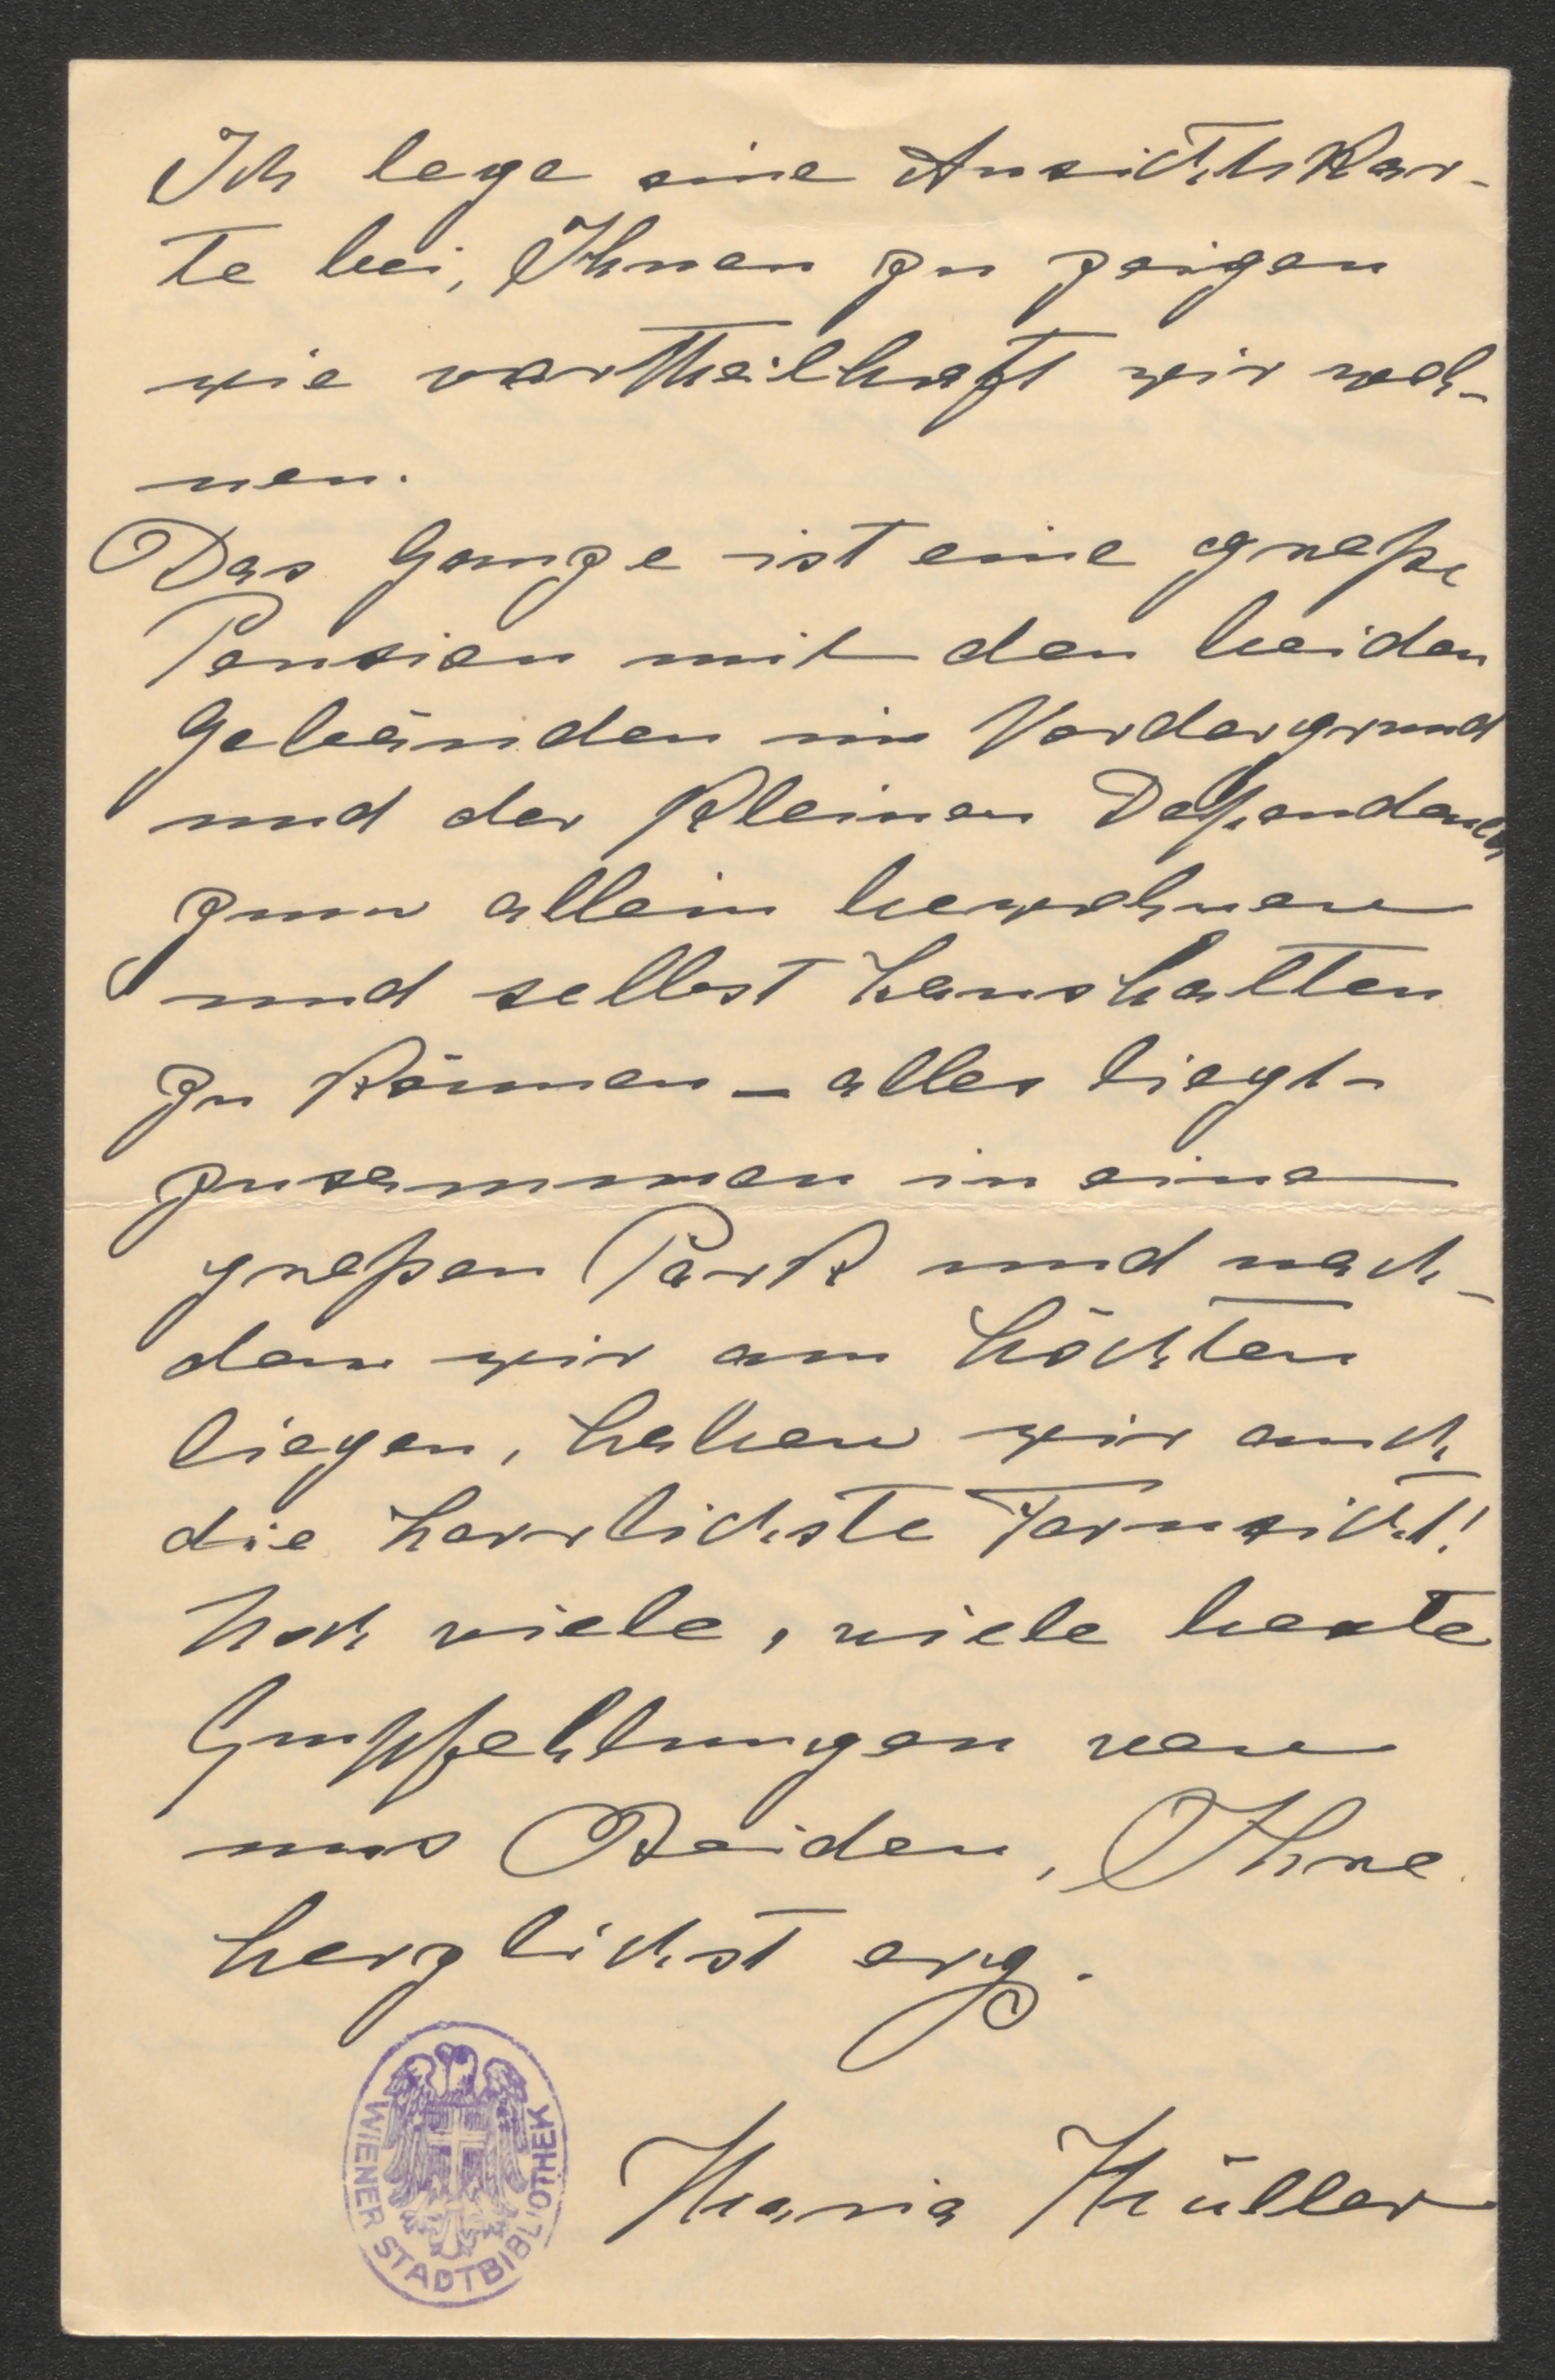 Ich lege eine Ansichtskar-
te bei, Ihnen zu zeigen
wie vortheilhaft wir woh-
nen.
Das Ganze ist eine große
Pension mit den beiden
Gebäuden im Vordergrund
und der kleinen Dependance
zum allein bewohnen
und selbst haushalten
zu können – alles liegt
zusammen in einem
großen Park und nach-
dem wir am höchten
liegen, haben wir auch
die herrlichste Fernsicht!
Noch viele, viele beste
Empfehlungen von
uns Beiden, Ihre
herzlichst erg.
Maria Müller
WIENER STADTBIBLIOTHEK